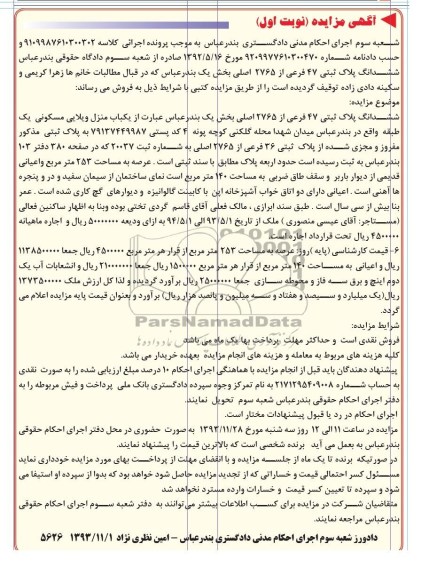 آگهی مزایده (نوبت اول)
شـــعبه سوم اجرای احکام مدنی دادگستـــری بندرعباس به موجب پرونده اجرائی کلاسه ۹۱۰۹۹۸۷۶۱۰۳۰۰۳۰۲ و
حسب دادنامه شـــماره ۹۲۰۹۹۷۷۶۱۰۳۰۰۴۷۰ مورخ ۱۳۹۲/۵/۱۶ صادره از شعبه ســـوم دادگاه حقوقی بندرعباس
ششـــدانگ پلاک ثبتی ۴۷ فرعی از ۲۷۶۵ اصلی بخش یک بندرعباس که در قبال مطالبات خانم ها زهرا کریمی و
سکینه دادی زاده توقیف گردیده است را از طریق مزایده کتبی با شرایط ذیل به فروش می رساند:
موضوع مزایده:
ششدانگ پلاک ثبتی ۴۷ فرعی از ۲۷۶۵ اصلی بخش یک بندرعباس عبارت از یکباب منزل ویلایی مسکونی یک
طبقه واقع در بندرعباس میدان شهدا محله گلکنی کوچه پونه ۴ کد پستی ۷۹۱۳۷۴۴۹۹۸۷ به پلاک ثبتی مذکور
مفروز و مجزی شـــده از پلاک ثبتی ۳۶ فرعی از ۲۷۶۵ اصلی به شماره ثبت ۲۰۰۳۷ که در صفحه ۳۸۰ دفتر ۱۰۳
بندرعباس به ثبت رسیده است حدود اربعه پلاک مطابق با سند ثبتی است. عرصه به مساحت ۲۵۳ متر مربع واعیانی
قدیمی از دیوار باربر و سقف طاق ضربی به مساحت ۱۴۰ متر مربع است نمای ساختمان از سیمان سفید و در و پنجره
ها آهنی است. اعیانی دارای دو اتاق خواب آشپزخانه اپن با کابینت گالوانیزه و دیوارهای گچ کاری شده است. عمر
بنا بیش از سی سال است. طبق سند ابرازی، مالک فعلی آقای قاسم گردی تختی بوده وبنا به اظهار ساکنین فعالی
(مســـتاجر: آقای عیسی منصوری) ملک از تاریخ ۹۳/۵/۱ الی ۹۴/۵/۱ به ازای ودیعه ۵۰۰۰۰۰۰۰ ریال و اجاره ماهیانه
۴۵۰۰۰۰۰ ریال تحت قرارداد اجاره است.
۶- قیمت کارشناسی (پایه) روز: عرصه به مساحت ۲۵۳ متر مربع از قرار هر متر مربع ۴۵۰۰۰۰۰ ریال جمعا ۱۱۳۸۵۰۰۰۰۰
ریال و اعیانی به مساحت ۱۴۰ متر مربع از قرار هر متر مربع ۱۵۰۰۰۰۰ ریال جمعا ۲۱۰۰۰۰۰۰۰ ریال و انشعابات آب یک
دوم اینچ و برق ســـه فاز و محوطه ســـازی جمعا ۲۵۰۰۰۰۰۰ ریال برآورد گردیده و لذا کل ارزش ملک ۱۳۷۳۵۰۰۰۰۰
ریال(یک میلیارد و سیصد و هفتاد و سه میلیون و پانصد هزار ریال) برآورد و بعنوان قیمت پایه مزایده اعلام می
گردد.
شرایط مزایده:
فروش نقدی است و حداکثر مهلت پرداخت بها یک ماه می باشد
کلیه هزینه های مربوط به معامله و هزینه های انجام مزایده بعهده خریدار می باشد.
پیشنهاد دهندگان باید قبل از انجام مزایده با هماهنگی اجرای احکام ۱۰ درصد مبلغ ارزیابی شده را به صورت نقدی
به حساب شـــماره ۲۱۷۱۲۹۵۴۰۹۰۰۸ به نام تمرکز وجوه سپرده دادگستری بانک ملی پرداخت و فیش مربوطه را به
دفتر اجرای احکام حقوقی بندرعباس شعبه سوم تحویل نمایند.
اجرای احکام در رد یا قبول پیشنهادات مختار است.
مزایده در ساعت ۱۱ الی ۱۲ روز سه شنبه مورخ ۱۳۹۳/۱۱/۲۸ به صورت حضوری در محل دفتر اجرای احکام حقوقی
بندرعباس به بعمل می آید برنده شخصی است که بالاترین قیمت را پیشنهاد نمایند.
در صورتیکه برنده تا یک ماه از جلســـه مزایده و با انقضای مهلت از پرداخـــت بهای مورد مزایده خودداری نماید
مســـئول کسر احتمالی قیمت و خساراتی که از تجدید مزایده حاصل شود خواهد بود که بدوا از سپرده او استیفا می
شود و سپرده تا تعیین کسر قیمت و خسارات وارده مسترد نخواهد شد
متقاضیان شـــرکت در مزایده برای کســـب اطلاعات بیشتر می‌توانند به دفتر شعبه ســـوم اجرای احکام حقوقی
بندرعباس مراجعه نمایند.
دادورز شعبه سوم اجرای احکام مدنی دادگستری بندرعباس - امین نظری نژاد ۱۳۹۳/۱۱/۱ ۵۶۲۶
ParsNamadData